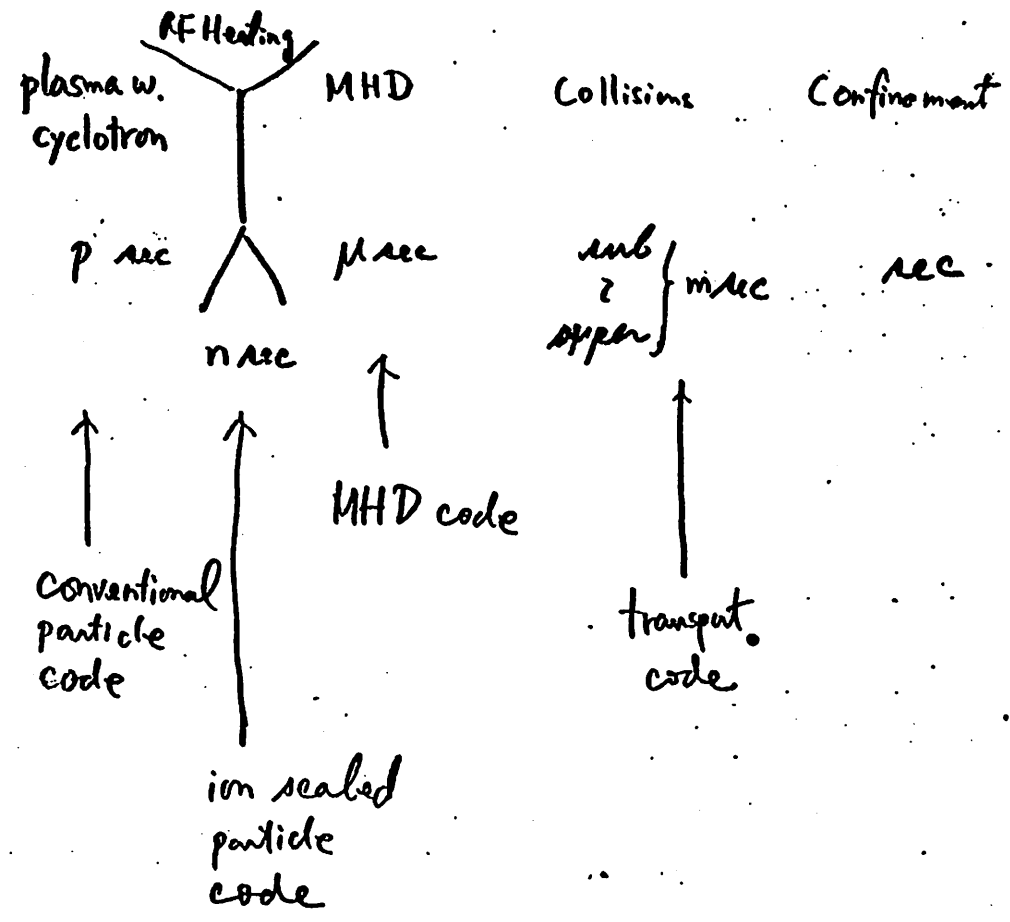 RF Heating
plasma w.
cyclotron
MHD
Collisions
Confinement
p sec
μ sec
sub
upper
m sec
sec
n sec
MHD code
conventional
particle
code
transport
code
ion scaled
particle
code